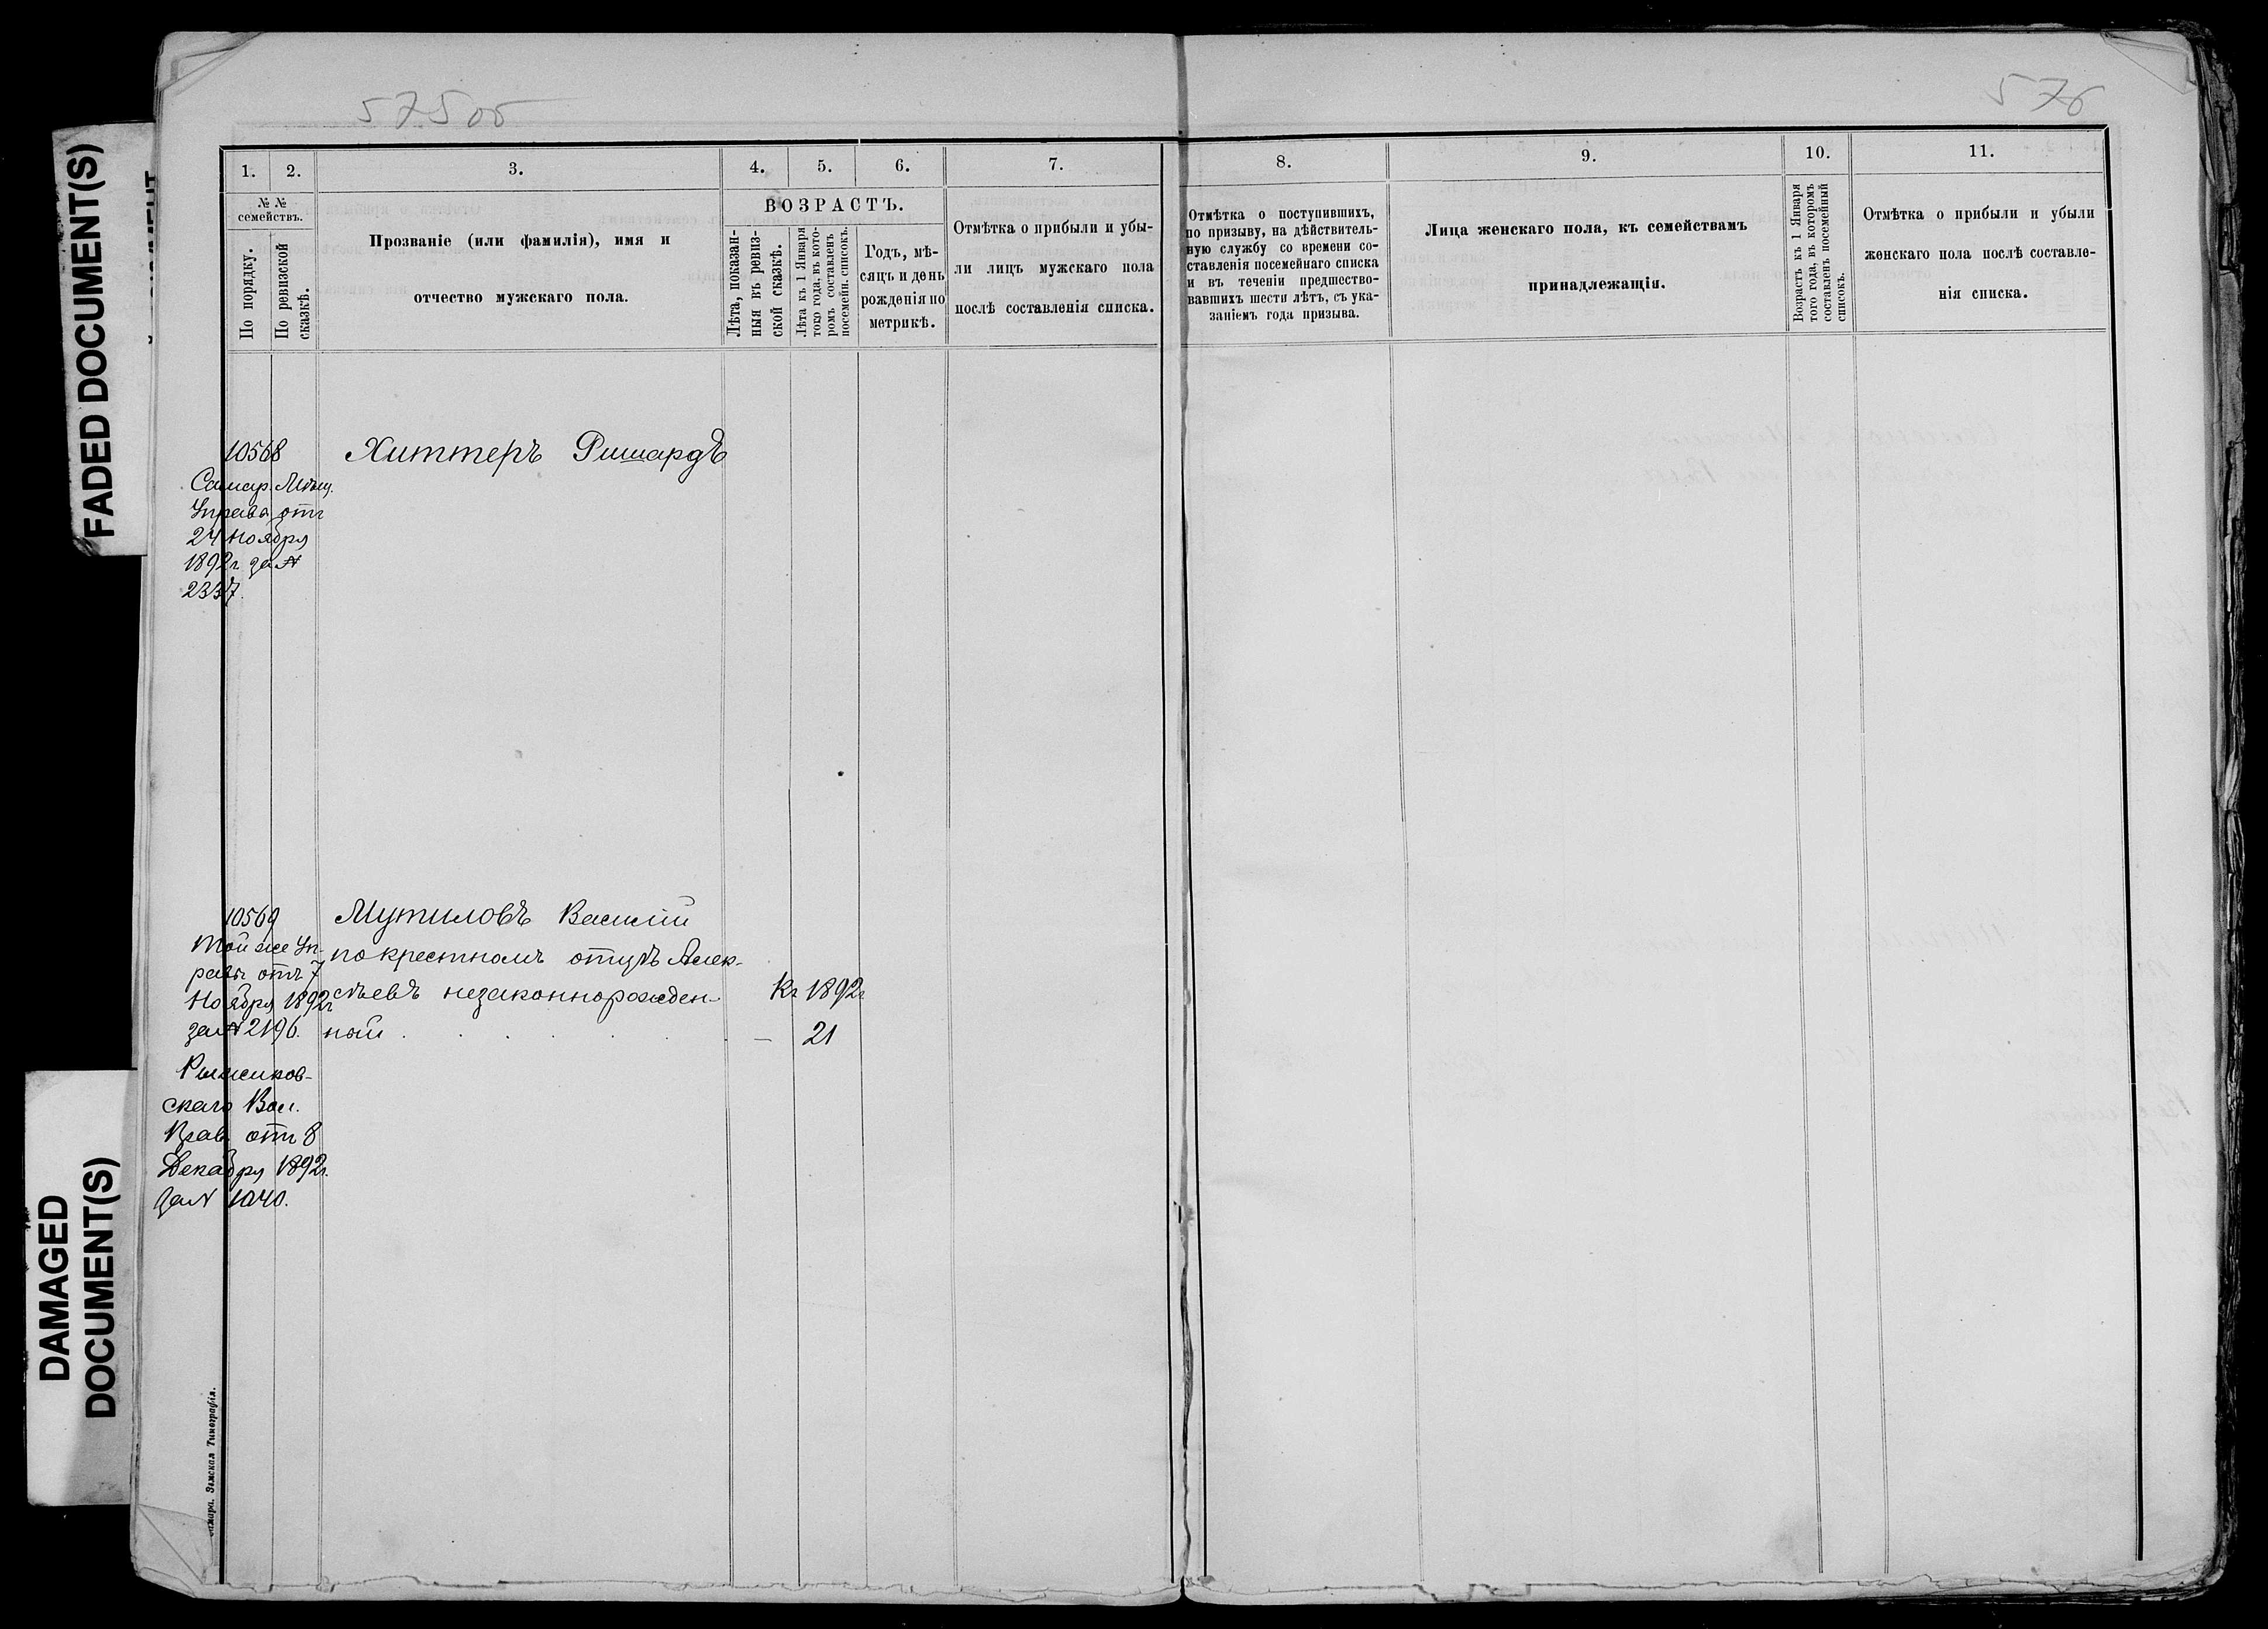 FADED DOCUMENT(S)
DAMAGED
DOCUMENT(S)
575об
576
1.
2.
3.
4.
5.
6.
7.
8.
9.
10.
11.
№ №
семействъ.
По порядку.
По ревизской
сказкѣ.
Прозваніе (или фамилія), имя и
отчество мужскаго пола.
ВОЗРАСТЪ.
Лѣта, показан-
ныя въ ревиз-
ской сказкѣ.
Лѣта къ 1 Января
того года, въ кото-
ромъ составленъ
посемейн. списокъ.
Годъ, мѣ-
сяцъ и день
рожденія по
метрикѣ.
Отмѣтка о прибыли и убы-
ли лицъ мужскаго пола
послѣ составленія списка.
Отмѣтка о поступившихъ,
по призыву, на дѣйствитель-
ную службу со времени со-
ставленія посемейнаго списка
и въ теченіи предшество-
вавшихъ шести лѣтъ, съ ука-
заніемъ года призыва.
Лица женскаго пола, къ семействамъ
принадлежащія.
Возрастъ къ 1 Января
того года, въ которомъ
составленъ посемейный
списокъ.
Отмѣтка о прибыли и убыли
женскаго пола послѣ составле-
нія списка.
10568
Хиттеръ Ришардъ
Самар. Мѣщ.
Управа отъ
24 Ноября
1892г за №
2337.
10569
Мутиловъ Василій
Той же Уп-
равы отъ 7
Ноября 1892г
за № 2196.
по крестномъ отцѣ Алек-
сѣевъ незаконнорожден-
ной
Къ 1892г
— 21
скаго Вол.
Прав. отъ 8
Декабря 1892г.
За № 1040.
Самара. Земская Типографія.